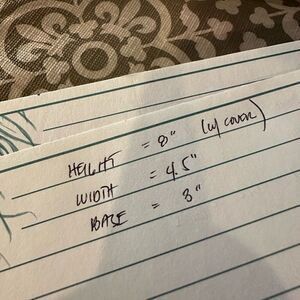 HEIGHT = 8" (w/ COVER)
WIDTH = 4.5"
BASE = 3"